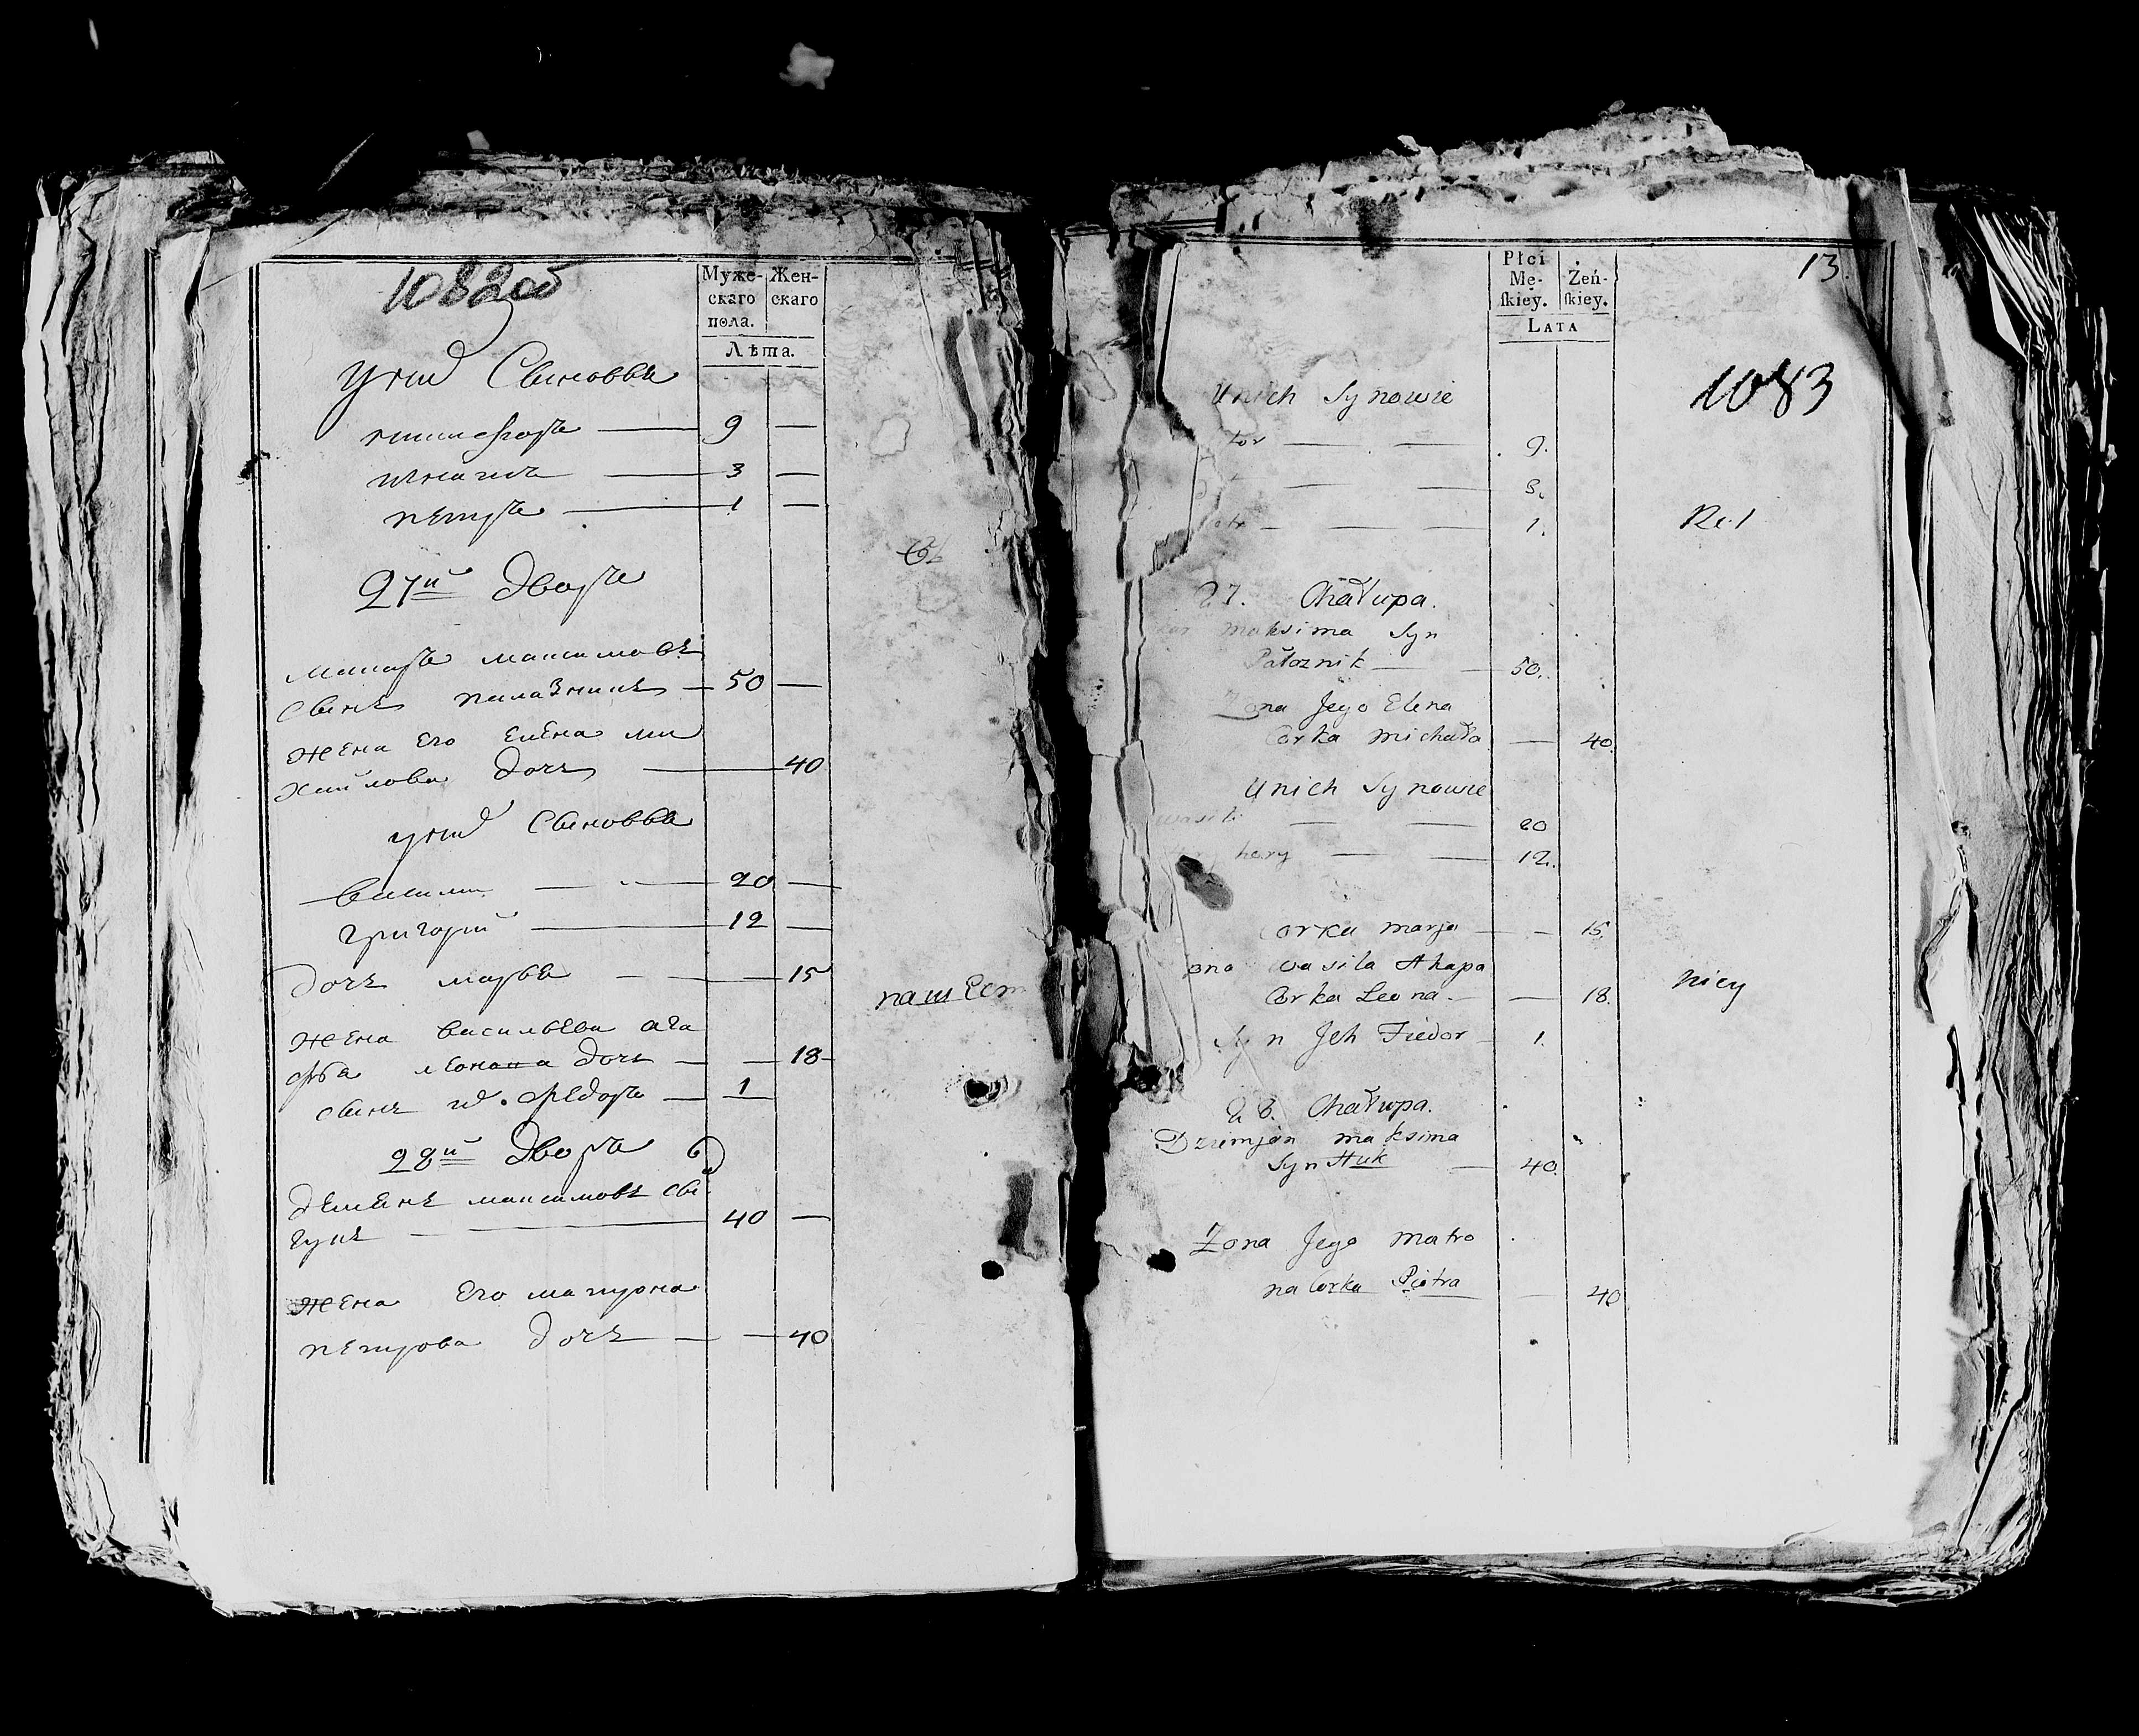 1082об
Муже-
скаго
пола.
Жен-
скаго
Лѣта.
у них Сыновья
никифоръ — 9 —
игнатъ — 3 —
петръ — 1 —
27й Дворъ
макаръ максимовъ
сынъ палазникъ — 50 —
жена его елена ми
хайлова дочь — 40
у них Сыновья
василий — 20 —
григорий — 12 —
дочь марья — — 15
жена васильева ага
фья леонона дочь — — 18
сынъ их федоръ — 1
28й Дворъ
демьянъ максимовъ сы:
гукъ — 40 —
жена его матрона
петрова дочь — — 40
Płci
Mę-
ſkiey.
Żeń-
ſkiey.
LATA
13.
1083
Unich Synowie
tor — — 9.
— — 3.
otr — — 1.
27. Chałupa.
kar maksima Syn
Pałoznik — 50.
Zona Jego Elena
Corka michała — 40.
Unich Synowie
wasili — — 20
hory — — 12.
Corka marja — — 15.
ona wasila Ahapa
Corka Leona — — 18.
Syn Jeh Fiedor — 1.
28. Chałupa.
Dziemjan maksima
Syn Huk — 40.
Zona Jego matro
na Corka Piotra — 40